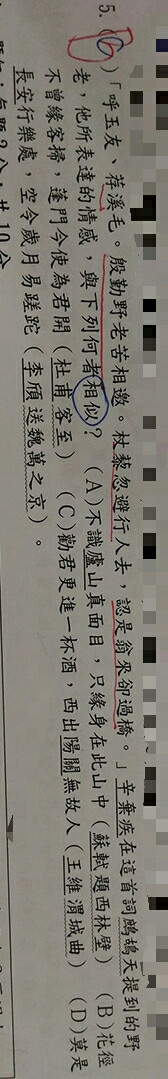 5. ( )「呼玉友、荐溪毛。殷勤野老苦相邀。杖藜忽避行人去，認是翁來卻過橋。」辛棄疾在這首詞鷓鴣天提到的野
老，他所表達的情感，與下列何者相似？（A)不識廬山真面目，只緣身在此山中（蘇軾題西林壁）（B)花徑
不曾緣客掃，蓬門今使為君開（杜甫客至）（C)勸君更進一杯酒，西出陽關無故人（王維渭城曲）（D)莫是
長安行樂處，空令歲月易蹉跎（李頎送魏萬之京）。
2分，共10分